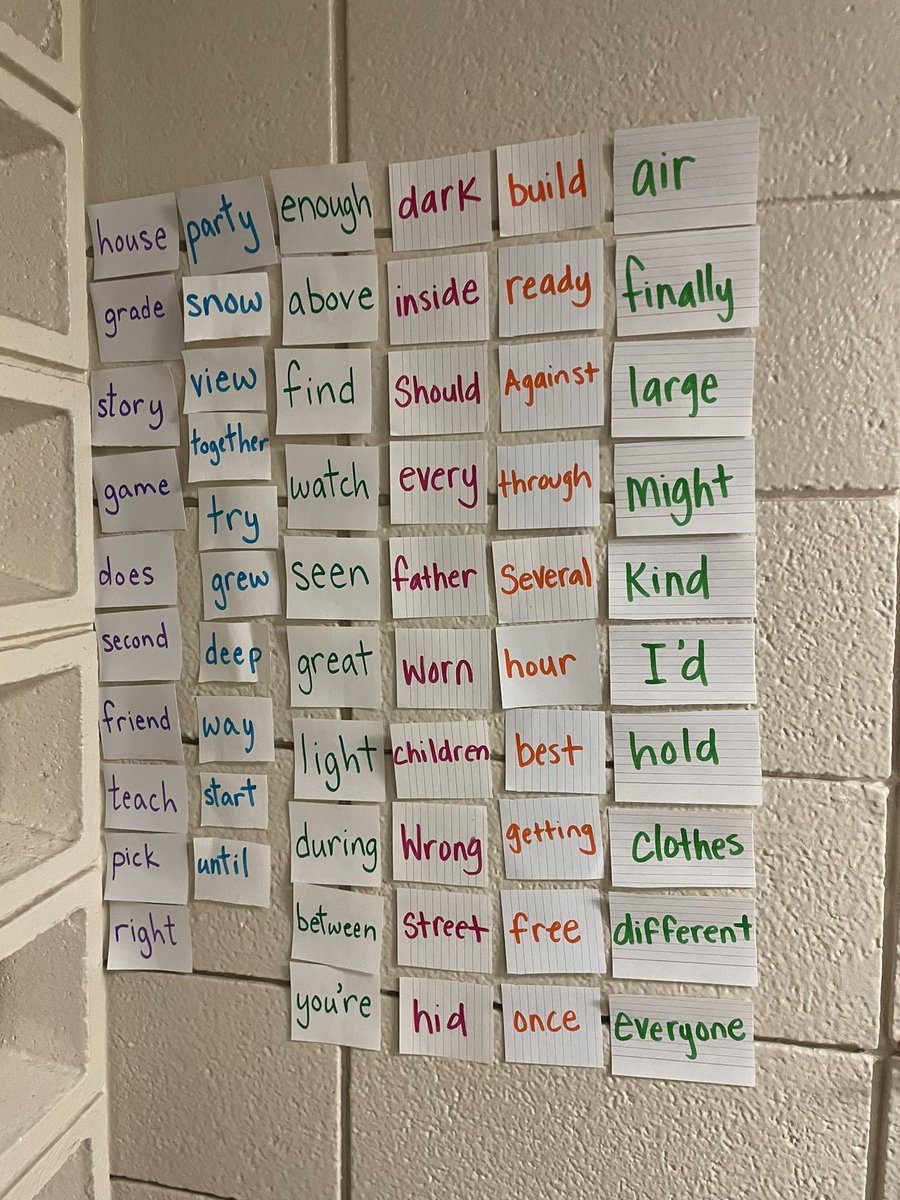 house
grade
story
game
does
second
friend
teach
pick
right
party
snow
view
together
try
grew
deep
way
start
until
enough
above
find
watch
seen
great
light
during
between
you're
dark
inside
Should
every
father
Worn
Children
Wrong
Street
hid
build
ready
Against
through
Several
hour
best
getting
free
once
air
finally
large
Might
Kind
I'd
hold
Clothes
different
everyone